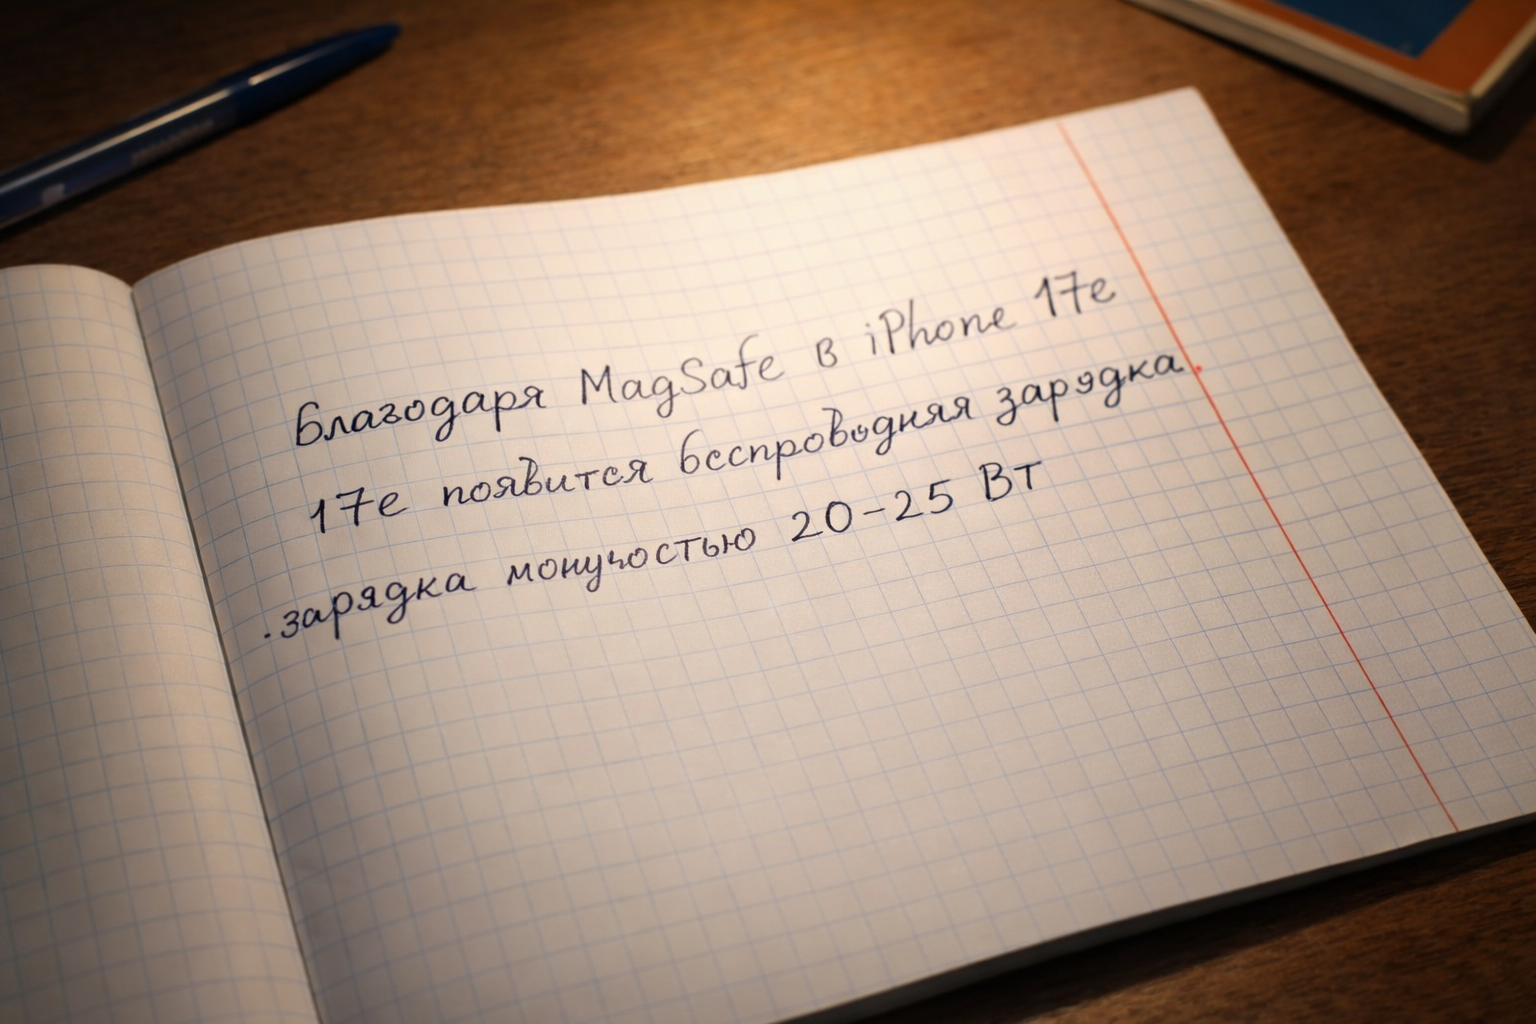 Благодаря MagSafe в iPhone 17e
17e появится беспроводняя зарядка.
.зарядка монучостью 20-25 Вт